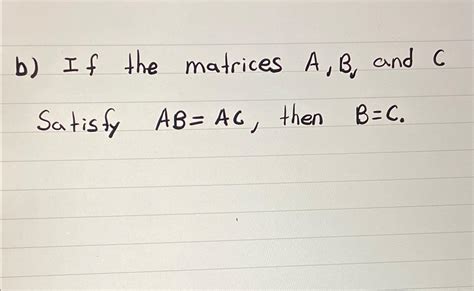 b) If the matrices A, B, and C
Satisfy AB = AC, then B=C.